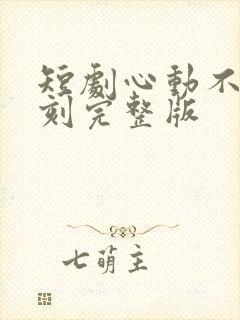 短劇心動不
刻完整版
七萌主